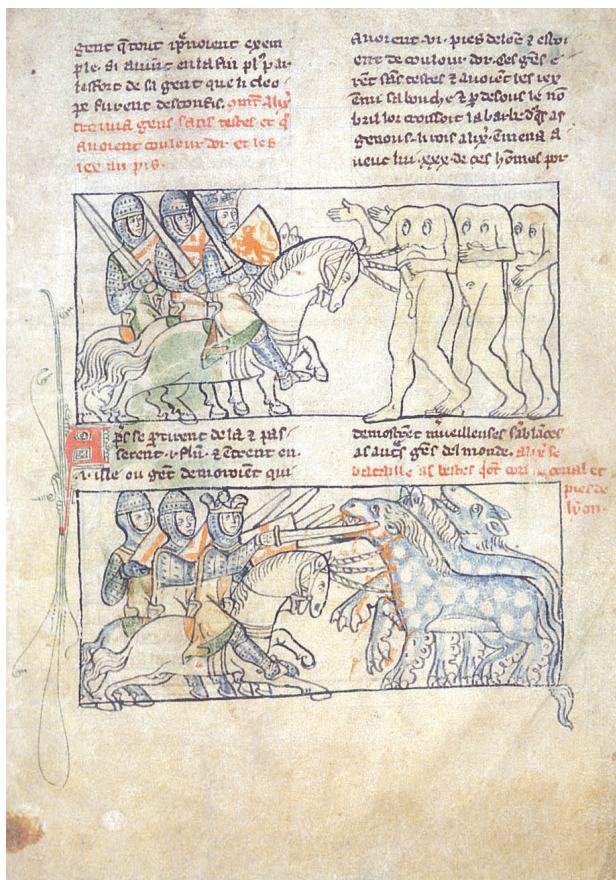 gent q̃ tout ip̃noient exem
ple. si auint en la fin pl' par
lesfort de sa gent que li cleo
pe furent desconfis. alix̃
gens sans testes et q̃
auoient coulour dor. et les
iex au pis.
auoient .vi. pies de lonc ⁊ estoi
ent de coulour dor. Ces gẽs e
rent sãs testes ⁊ auoient les iex
⁊ mi sa bouche ⁊ p̃ desous le nõ
bril lor croissoit la barbe as
genous. li rois alix̃. en mena a
uenc lui .xxx. de ces hõmes por
Ap̃s se p̃tirent de la ⁊ pas
serent .i. flun. ⁊ ẽtrent en
.i. ille ou gẽt demoroient qui
demostrer sãblãces
as aut̃s gẽs del monde. alix̃ se
bataille as bestes cheual et
pies de
lyon.